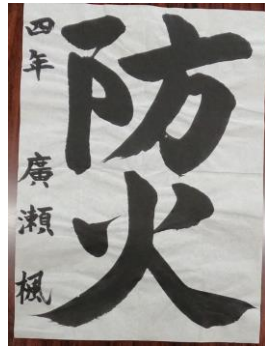 防火
四年 廣瀬 楓